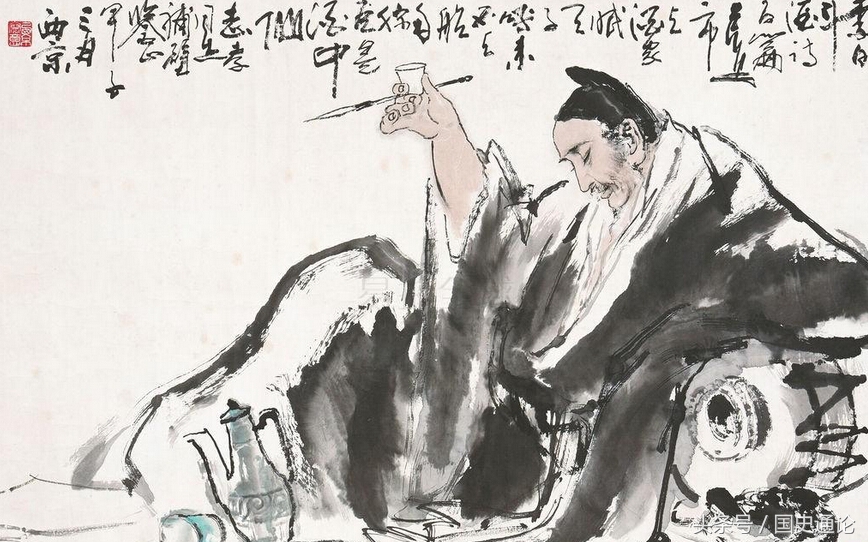 李白
斗
酒诗
百篇
長安
市
上
酒家
眠
天
子
呼来
不上
船
自
称
臣是
酒中
仙
志孝
同志
補壁
甲子
三月
西京
头条号 / 国史通论